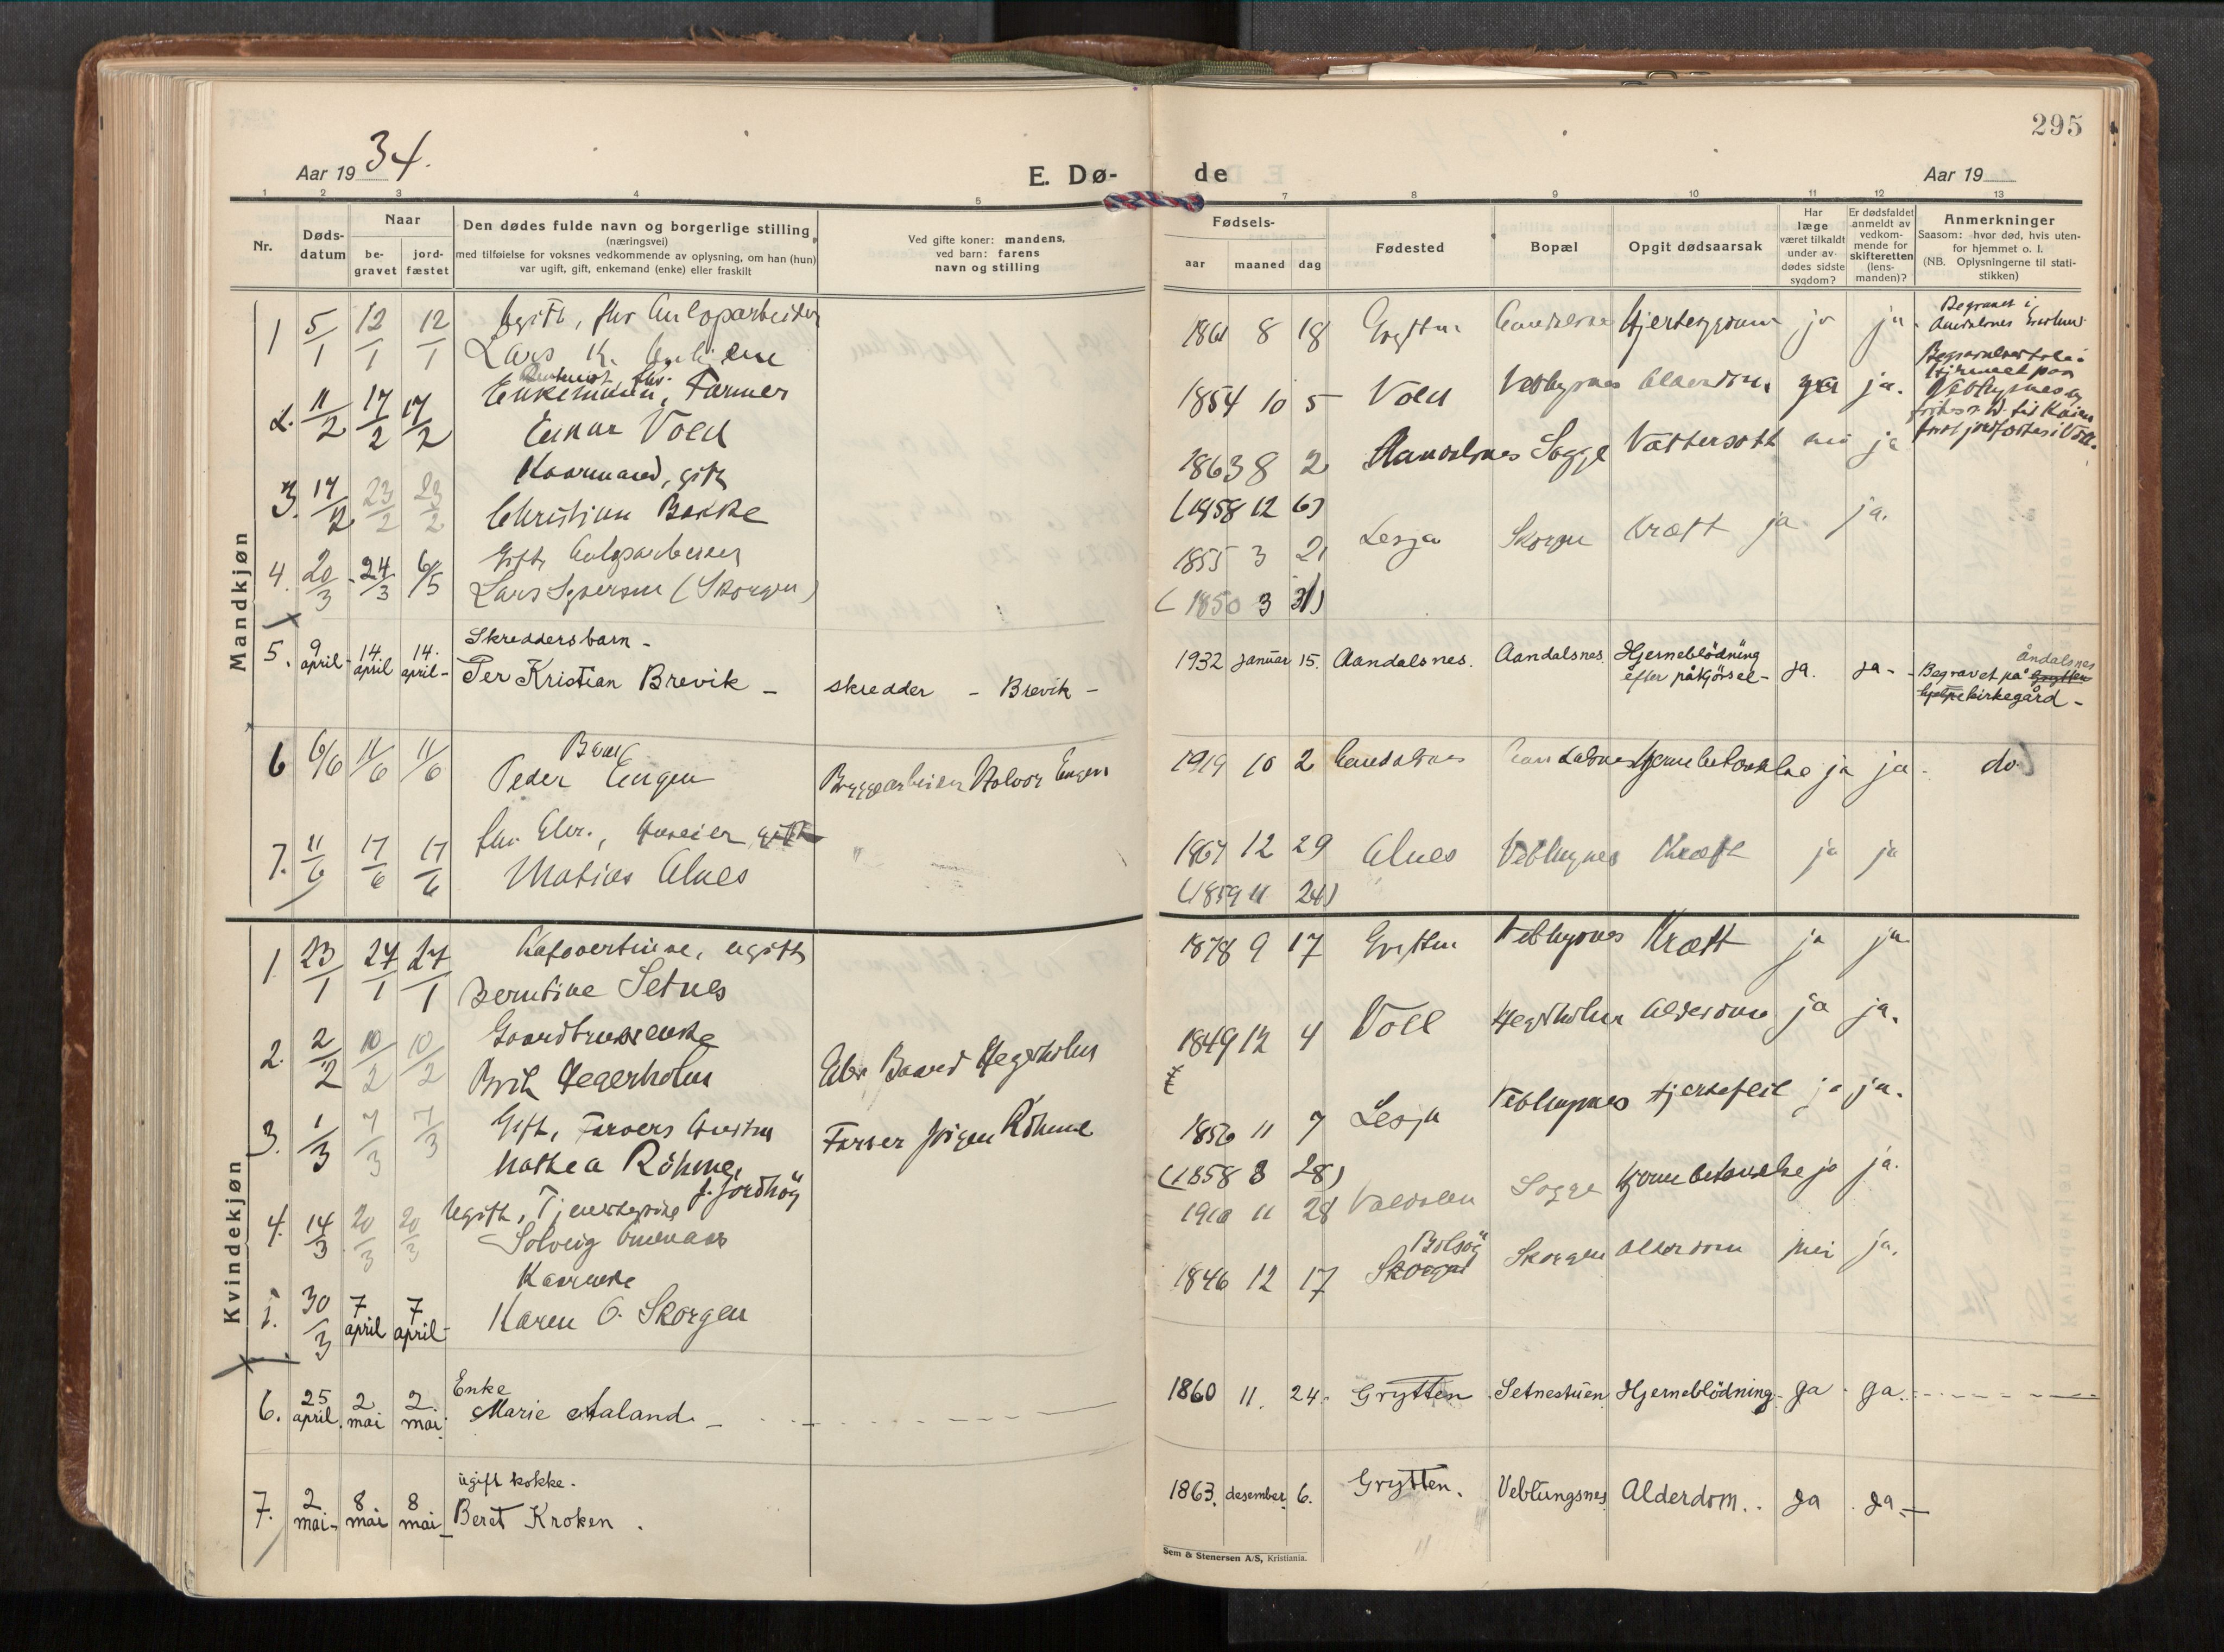 295
Aar 1934.
E. Dø-
de
Aar 19
1 2 3 4 5
7 8 9 10 11 12 13
Nr.
Døds-
datum
Naar
be-
gravet
jord-
fæstet
Den dødes fulde navn og borgerlige stilling
(næringsvei)
med tilføielse for voksnes vedkommende av oplysning, om han (hun)
var ugift, gift, enkemand (enke) eller fraskilt
Ved gifte koner: mandens,
ved barn: farens
navn og stilling
Fødsels-
aar maaned dag
Fødested
Bopæl
Opgit dødsaarsak
Har
læge
været tilkaldt
under av-
dødes sidste
sygdom?
Er dødsfaldet
anmeldt av
vedkom-
mende for
skifteretten
(lens-
manden)?
Anmerkninger
Saasom: hvor død, hvis uten-
for hjemmet o. l.
(NB. Oplysningerne til stati-
stikken)
Mandkjøn
1 5/1 12/1 12/1 Ugift, fhv. Anlgsarbeider
Lars K.
1861 8 18 Grytten Aandalsnes Hjertesygdom ja ja.
Begravet i
Aandalsnes
2. 11/2 17/2 17/2 Enkemand, Farmer
Einar Vold
1854 10 5 Vold Veblugsnes Alderdom ja ja.
3. 17/2 23/2 23/2 Kaarmand, gift
Christian Bakke
1863 8 2 Aandalsnes Sogge Vattersott nei ja
(1858 12 6)
4. 20/3 24/3 6/5 Gift, Anlgsarbeider
Lars Syversen (Skorgen)
1855 3 21 Lesja Skorgen Kræft ja ja.
(1850 3 31)
5. 9 april - 14 april 14. april - Skreddersbarn -
Per Kristian Brevik - skredder - Brevik -
1932 januar 15. Aandalsnes. Aandalsnes. Hjerneblödning
efter påkjörsel - ja. ja - - Begravet på Grytten åndalsnes
kirkegård -
6 6/6 11/6 11/6 Barn
Peder Engen Bryggearbeider Halvor Engen
1919 10 2 Aandalsnes Aandalsnes Hjernebetændelse ja ja. do
7. 11/6 17/6 17/6 fhv. Elvr., Huseier, gift
Matias Alnes
1867 12 29 Alnes Veblugnes Kræft ja ja
(1859 11 24)
Kvindekjøn
1. 23/1 27/1 27/1 Kafevertinne, ugift
Berntine Setnes
1878 9 17 Grytten Veblugsnes Kræft ja ja
2. 2/2 10/2 10/2 Gaardbrukerenke
Brit Hegerholm Elvr. Baard Hegerholm
1849 12 4 Voll Hegerholm Alderdom ja ja.
3. 1/3 7/3 7/3 Gift, Farvers Hustru
Mathea Röhme, f. Jordhöy Farver Jörgen Röhme
1856 11 7 Lesja Veblugnes Hjertefeil ja ja.
(1858 8 28)
4. 14/3 20/3 20/3 Ugift, Tjenestepike
Solveig
1910 11 28 Valdalen Sogge Hjernebetændelse ja ja.
5. 30/3 7 april 7 april - Kaarenke
Karen O. Skorgen
1846 12 17 Bolsöy
Skorgen Skorgen Alderdom nei ja.
6. 25 april. 2 mai 2. mai. Enke
Marie Aaland. -
1860 11. 24. Grytten Setnestuen. Hjerneblödning. ja. ja.
7. 2 mai - 8 mai 8 mai - ugift kokke.
Beret Kroken.
1863. desember. 6. Grytten. Veblungsnes. Alderdom. ja. ja. -
Sem & Stenersen A/S, Kristiania.